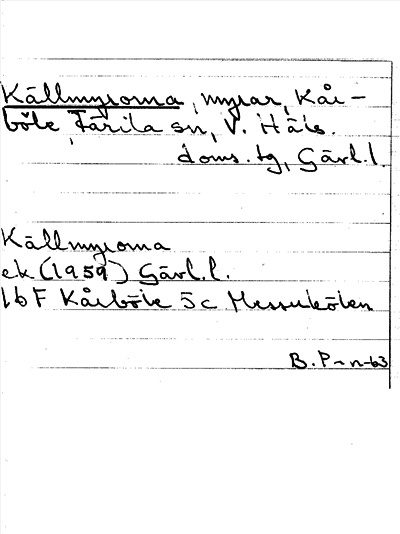 Källmyrorna, myrar, Kår-
böle, Färila sn, V. Häls.
doms.tg, Gävl.l.
Källmyrorna
ek (1959) Gävl.l.
16 F Kårböle 5c Messukölen
B.P-n-63